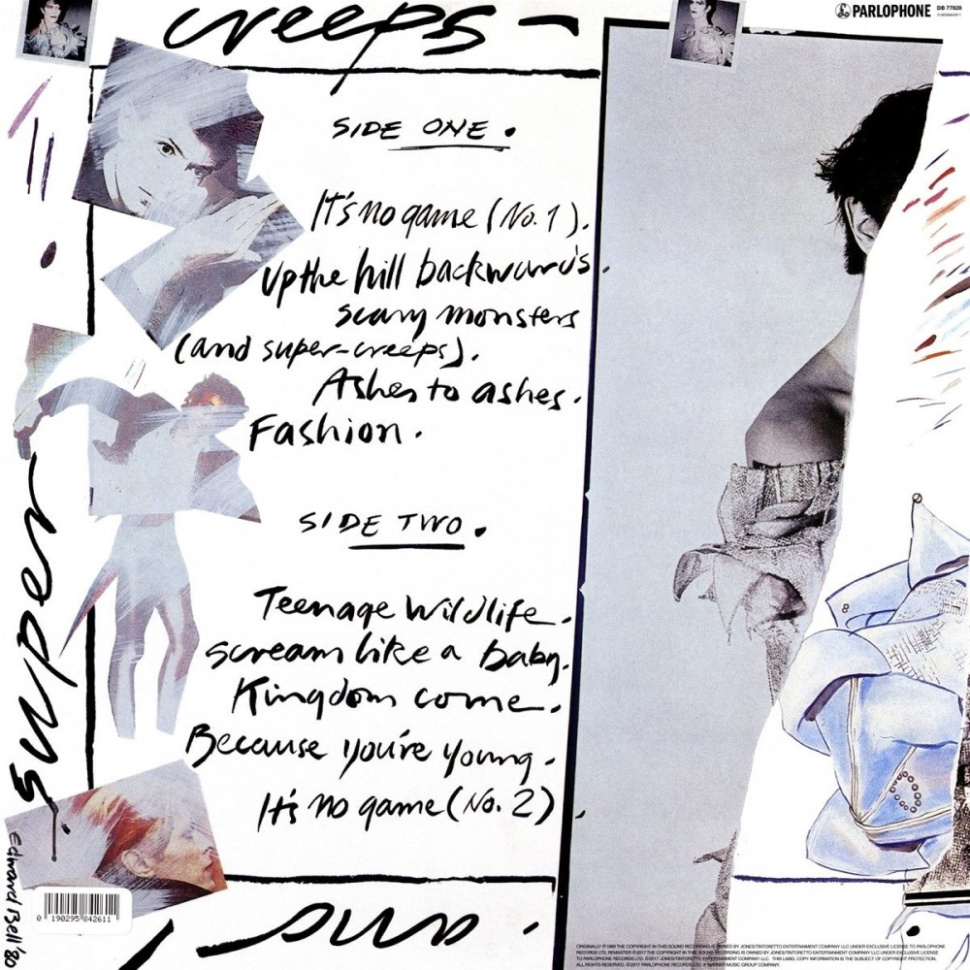 creeps -
PARLOPHONE
DB 77828
SIDE ONE.
It's no game (No. 1).
Up the hill backwards.
scary monsters
(and super-creeps).
Ashes to ashes.
Fashion.
SIDE TWO.
Teenage Wildlife.
scream like a baby.
Kingdom come.
Because you're young.
It's no game (No. 2)
super
Edward Bell '80
0 190295 842611
and
ORIGINALLY ℗1980 THE COPYRIGHT IN THIS SOUND RECORDING IS OWNED BY JONES/TINTORETTO ENTERTAINMENT COMPANY LLC UNDER EXCLUSIVE LICENSE TO PARLOPHONE
RECORDS LTD. REMASTER ℗2017 THE COPYRIGHT IN THIS SOUND RECORDING IS OWNED BY JONES/TINTORETTO ENTERTAINMENT COMPANY LLC UNDER EXCLUSIVE LICENSE
TO PARLOPHONE RECORDS LTD. ©2017 JONES/TINTORETTO ENTERTAINMENT COMPANY LLC. THIS LABEL COPY INFORMATION IS THE SUBJECT OF COPYRIGHT PROTECTION.
ALL RIGHTS RESERVED. ©2017 PARLOPHONE RECORDS LTD. A WARNER MUSIC GROUP COMPANY.